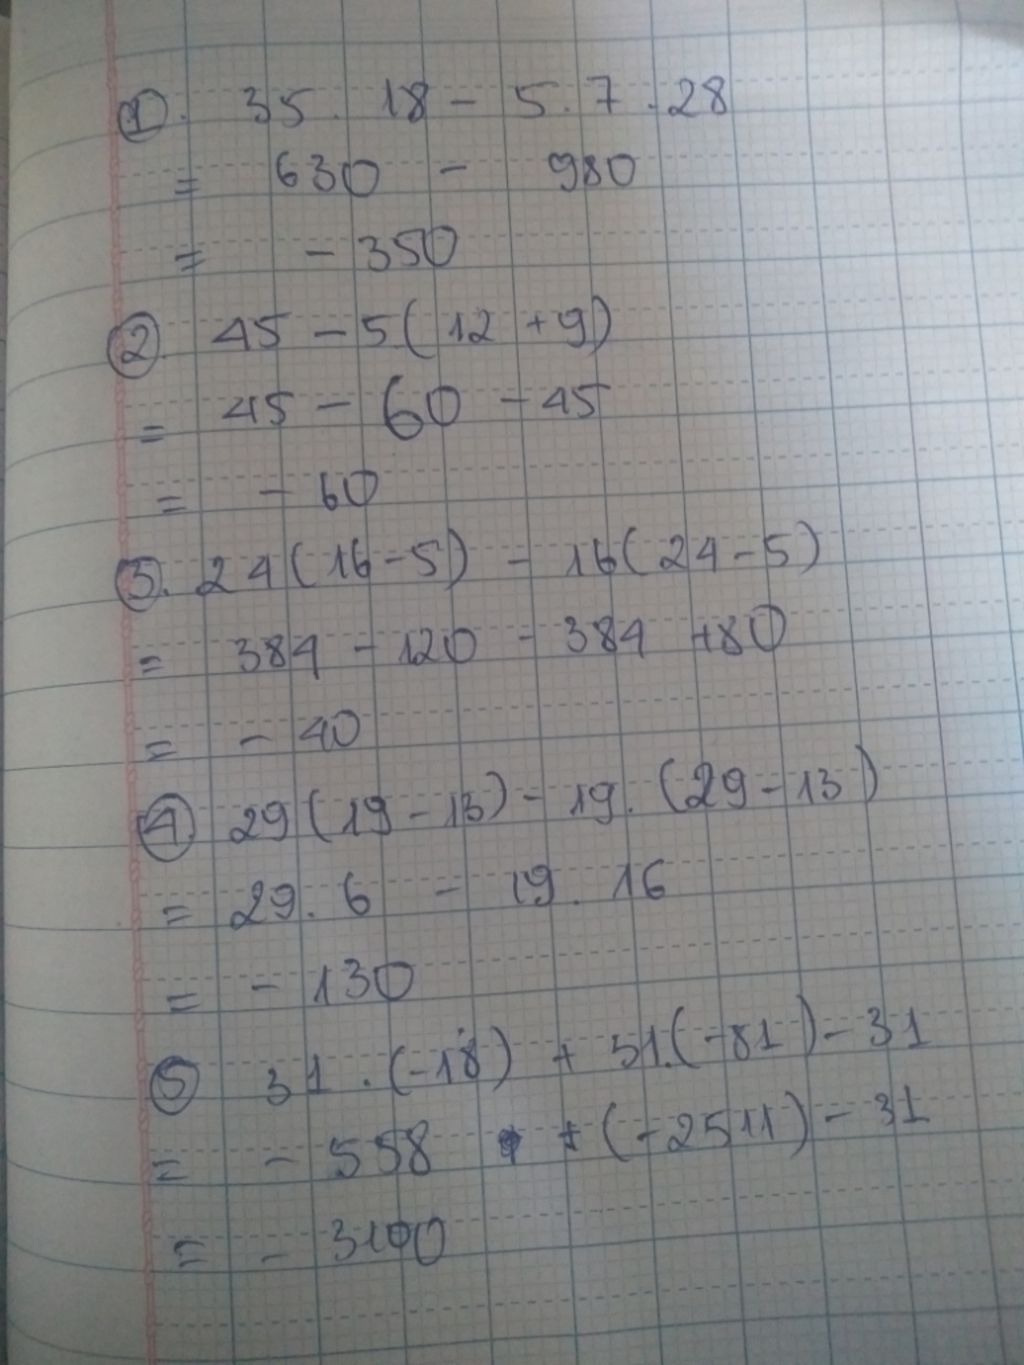 ①. 35 . 18 - 5 . 7 . 28
= 630 - 980
= - 350
②. 45 - 5 ( 12 + 9 )
= 45 - 60 - 45
= - 60
③. 24 ( 16 - 5 ) - 16 ( 24 - 5 )
= 384 - 120 - 384 + 80
= - 40
④. 29 ( 19 - 13 ) - 19 . ( 29 - 13 )
= 29 . 6 - 19 . 16
= - 130
⑤ 31 . ( - 18 ) + 31 . ( - 81 ) - 31
= - 558 + ( - 2511 ) - 31
= - 3100